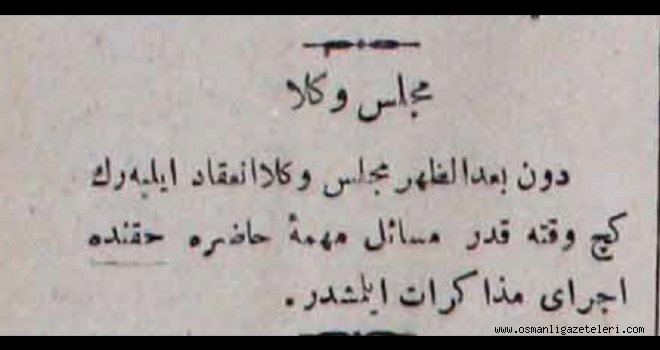 مجلس وكلا
دون بعدالظهر مجلس وكلا انعقاد ايليه‌رك
كيج وقته قدر مسائل مهمهٔ حاضره حقنده
اجراى مذاكرات ايلمشدر.
www.osmanligazeteleri.com